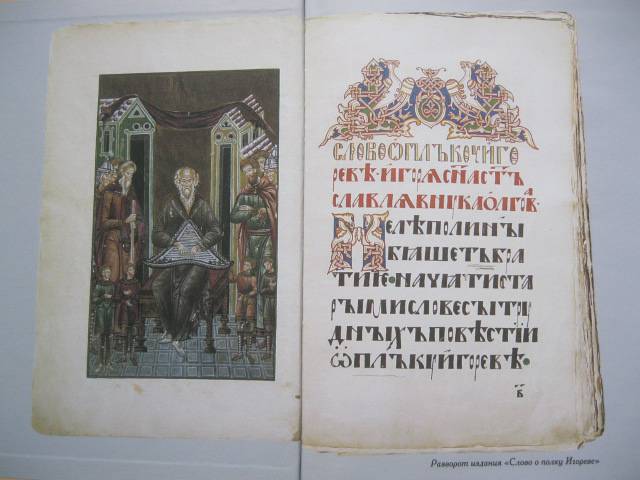 СЛОВО Ѿ ПЛЪКꙊ ИГО
РЕВѢ · ИГОРѦ СН҃А СТЪ
СЛАВЛѦ ВНꙊКА ОЛГОВА ·
НЕ ЛѢПО ЛИ НЫ
БѦШЕТЪ БРА
ТИЕ · НАЧѦТИ СТА
РЫМИ СЛОВЕСЫ ТРꙊ
ДНЫХЪ ПОВѢСТІИ
Ѿ ПЛЪКꙊ ИГОРЕВѢ ·
Разворот издания «Слово о полку Игореве»